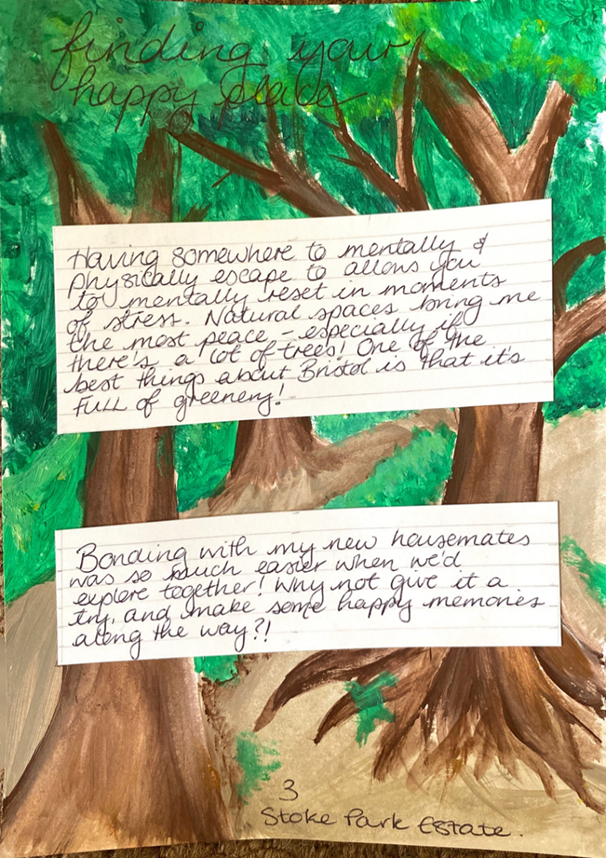 finding your
happy place
Having somewhere to mentally &
physically escape to allows you
to mentally reset in moments
of stress. Natural spaces bring me
the most peace - especially if
there's a lot of trees! One of the
best things about Bristol is that it's
FULL of greenery!
Bonding with my new housemates
was so much easier when we'd
explore together! Why not give it a
try, and make some happy memories
along the way?!
3
Stoke Park Estate.